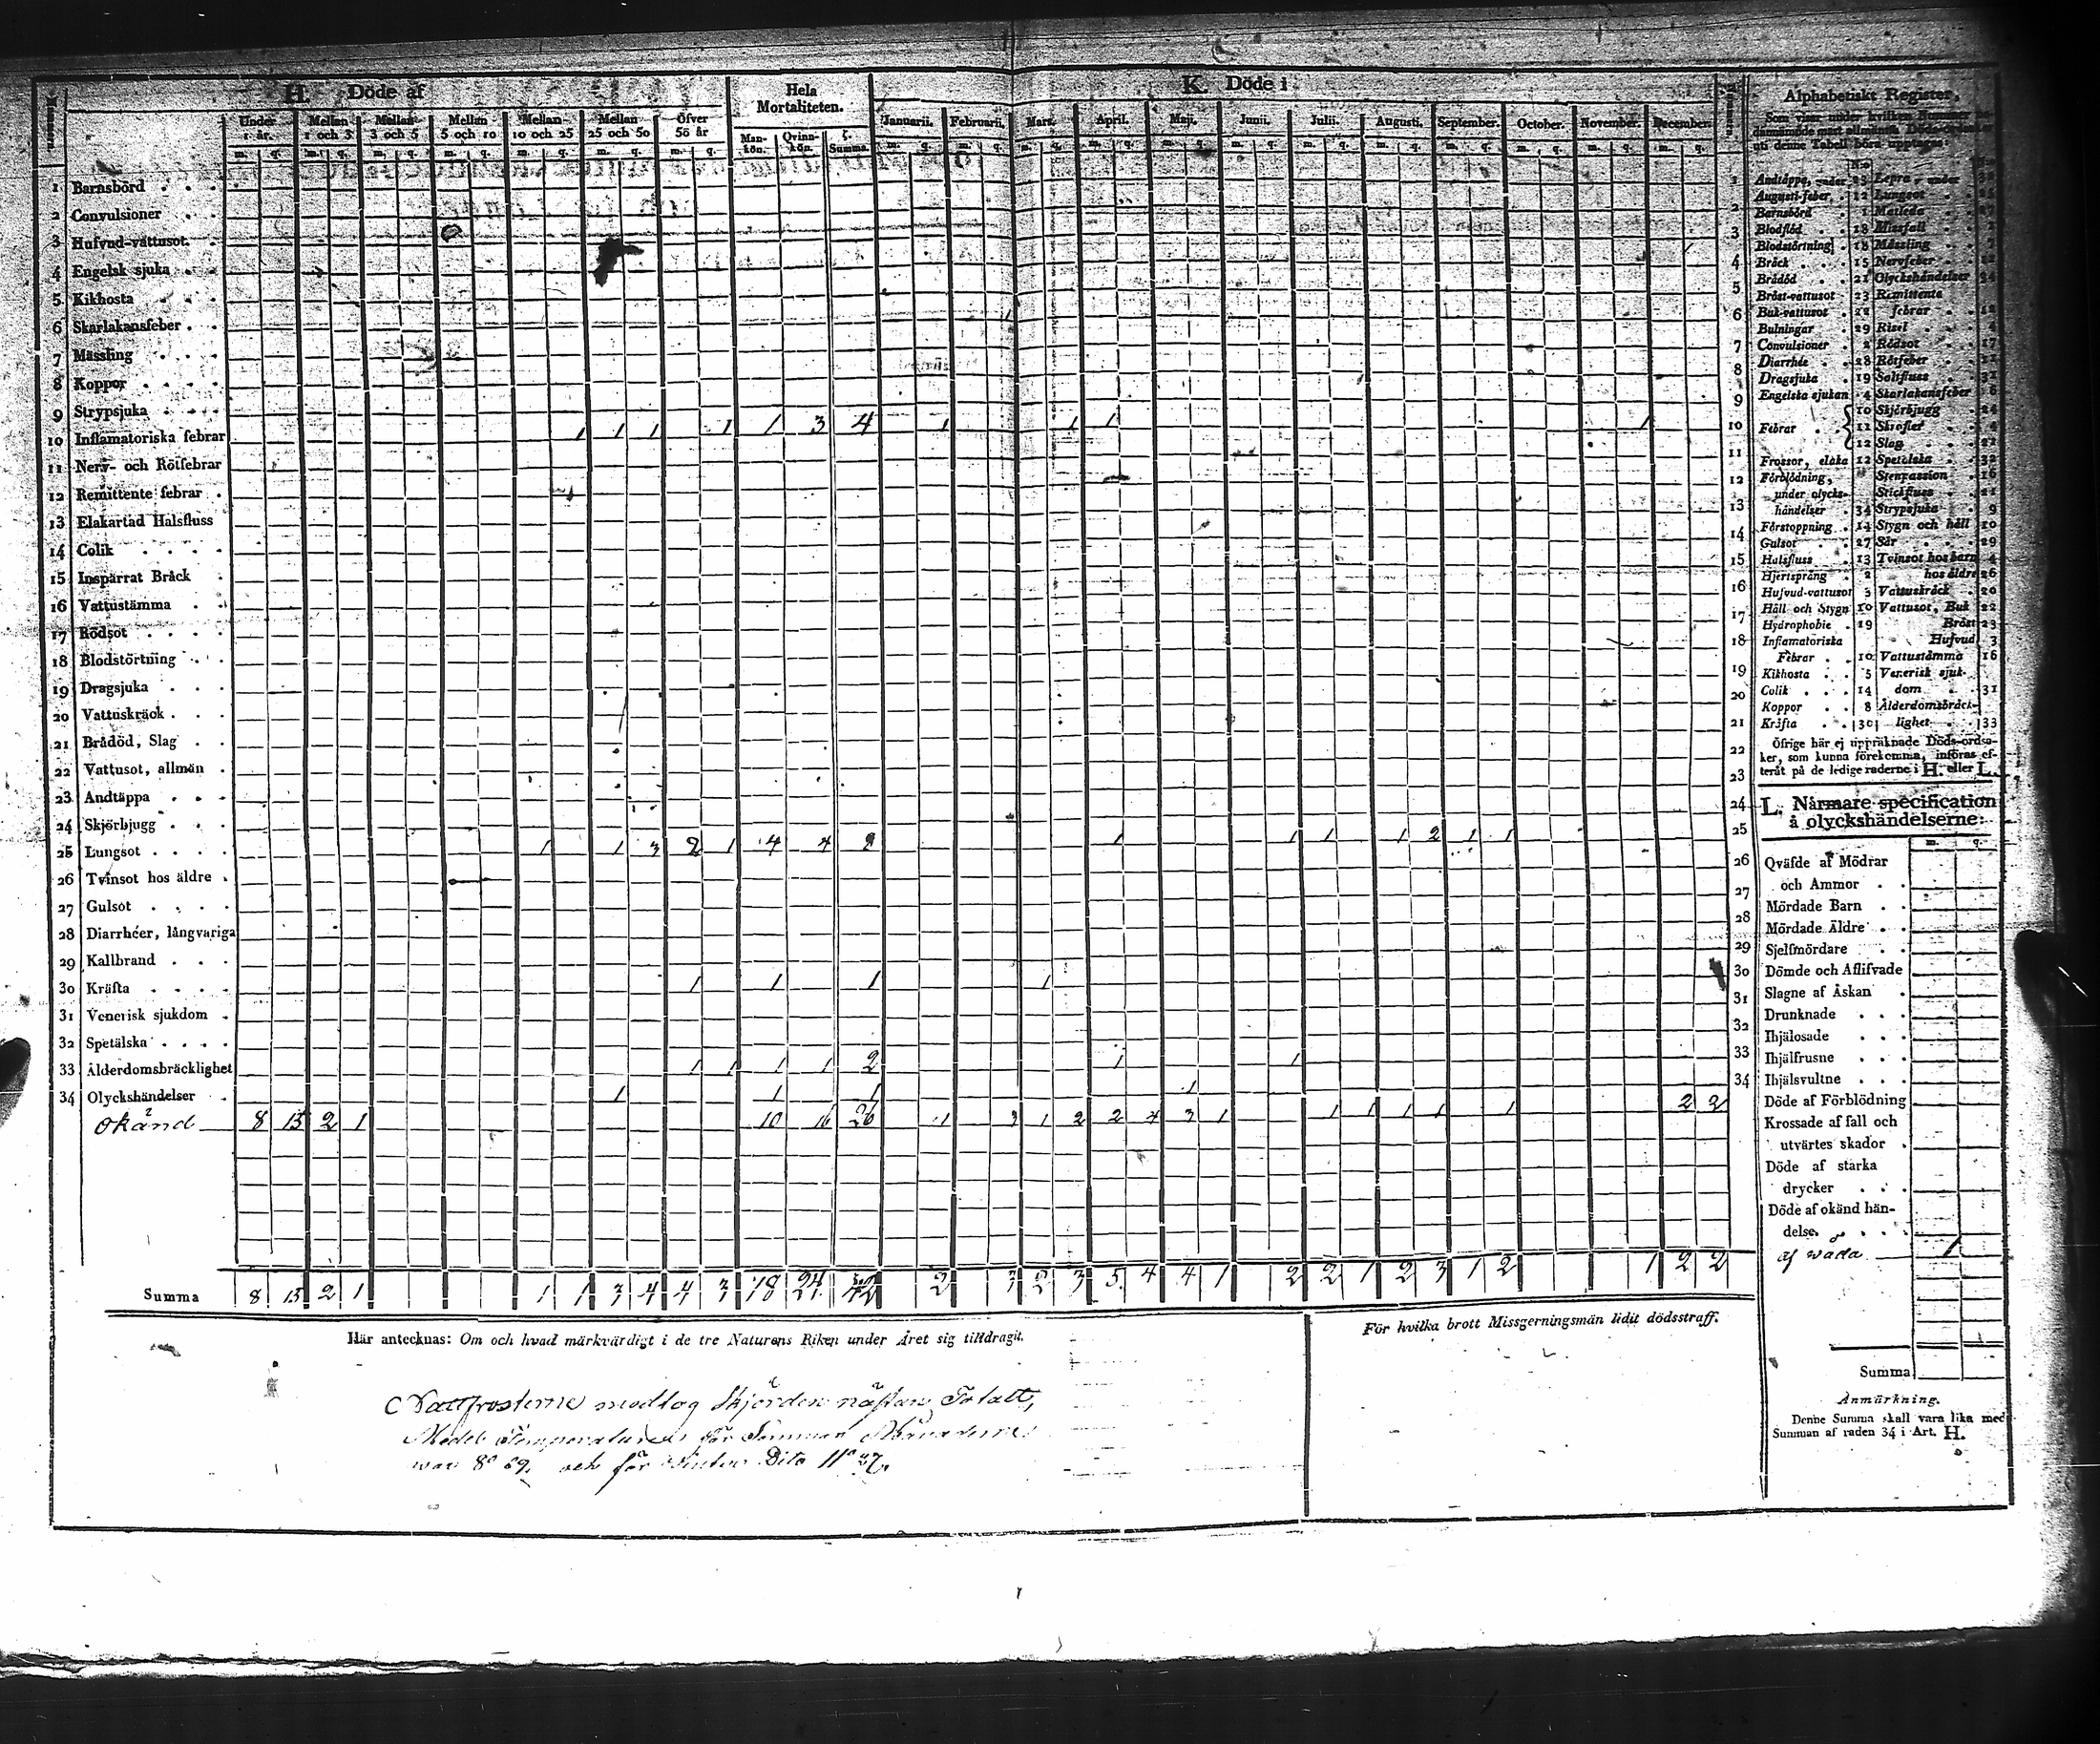 H. Döde af
Hela Mortaliteten.
K. Döde i
Under 1 år.
Mellan 1 och 3
Mellan 3 och 5
Mellan 5 och 10
Mellan 10 och 25
Mellan 25 och 50
Öfver 50 år
Mankön.
Qvinnkön.
Summa.
Januarii.
Februarii.
Mars.
April.
Maji.
Junii.
Julii.
Augusti.
September.
October.
November.
December.
1 Barnsbörd
2 Convulsioner
3 Hufvud-vattusot.
4 Engelsk sjuka
5 Kikhosta
6 Skarlakansfeber
7 Mässling
8 Koppor
9 Strypsjuka
10 Inflamatoriska febrar 1 1 1 1 1 3 4 1 1 1 1 10
11 Nerv- och Rötfebrar
12 Remittente febrar
13 Elakartad Halsfluss
14 Colik
15 Inspärrat Bråck
16 Vattustämma
17 Rödsot
18 Blodstörtning
19 Dragsjuka
20 Vattuskräck
21 Brådöd, Slag
22 Vattusot, allmän
23 Andtäppa
24 Skjörbjugg
25 Lungsot 1 1 3 2 1 4 4 8 1 1 1 1 2 1 1 25
26 Tvinsot hos äldre
27 Gulsot
28 Diarrhéer, långvariga
29 Kallbrand
30 Kräfta 1 1 1 1 30
31 Venerisk sjukdom
32 Spetälska
33 Ålderdomsbräcklighet 1 1 1 1 2 1 1 33
34 Olyckshändelser 1 1 1 1 34
Okänd 8 15 2 1 10 16 26 1 3 1 2 2 4 3 1 1 1 1 1 1 2 2
Summa 8 15 2 1 1 1 3 4 4 3 18 24 42 2 3 2 3 5 4 4 1 2 2 1 2 3 1 2 1 2 2
Här antecknas: Om och hvad märkvärdigt i de tre Naturens Riken under Året sig tilldragit.
Nattfrosterne medtog Skjörden nästan Totalt,
Medel Temperaturen för Sommar Månaderne
war 8° 69. och för Winter Dito 11° 27.
För hvilka brott Missgerningsmän lidit dödsstraff.
Alphabetiskt Register,
Som viser under hvilken Nummer
uti denne Tabell böra upptagas:
Andtäppa, under 23 Lepra under
Augusti-feber 12 Lungsot
Barnsbörd 1 Matleda
Blodflöd 18 Missfall
Blodstörtning 18 Mässling
Bråck 15 Nervfeber
Brådöd 21 Olyckshändelser 34
Bröst-vattusot 23 Remittente
Buk-vattusot 22 febrar 12
Bulningar 29 Risel 4
Convulsioner 2 Rödsot 17
Diarrhée 28 Rötfeber
Dragsjuka 19 Saltfluss 31
Engelska sjukan 4 Skarlakansfeber 6
Febrar 10 Skjörbjugg 24
11 Skrofler 4
12 Slag 21
Frossor, elaka 12 Spetälska 32
Förblödning, Stenpassion 16
under olycks- Stickfluss 21
händelser 34 Strypsjuka 9
Förstoppning 14 Stygn och håll 10
Gulsot 27 Sår 29
Halsfluss 13 Tvinsot hos barn 4
Hjertsprång 2 hos äldre 26
Hufvud-vattusot 3 Vattuskräck 20
Håll och Stygn 10 Vattusot, Buk 22
Hydrophobie 19 Bröst 23
Inflamatoriska Hufvud 3
Febrar 10 Vattustämma 16
Kikhosta 5 Venerisk sjuk-
Colik 14 dom 31
Koppor 8 Ålderdomsbräck-
Kräfta 30 lighet 33
Öfrige här ej uppräknade Döds-orsa-
ker, som kunna förekomma, införas ef-
teråt på de ledige raderne i H. eller L.
L. Närmare specification
å olyckshändelserne:
m. q.
Qväfde af Mödrar
och Ammor
Mördade Barn
Mördade Äldre
Sjelfmördare
Dömde och Aflifvade
Slagne af Åskan
Drunknade
Ihjälosade
Ihjälfrusne
Ihjälsvultne
Döde af Förblödning
Krossade af fall och
utvärtes skador
Döde af starka
drycker
Döde af okänd hän-
delse
af wåda 1
Summa
Anmärkning.
Denne Summa skall vara lika med
Summan af raden 34 i Art. H.